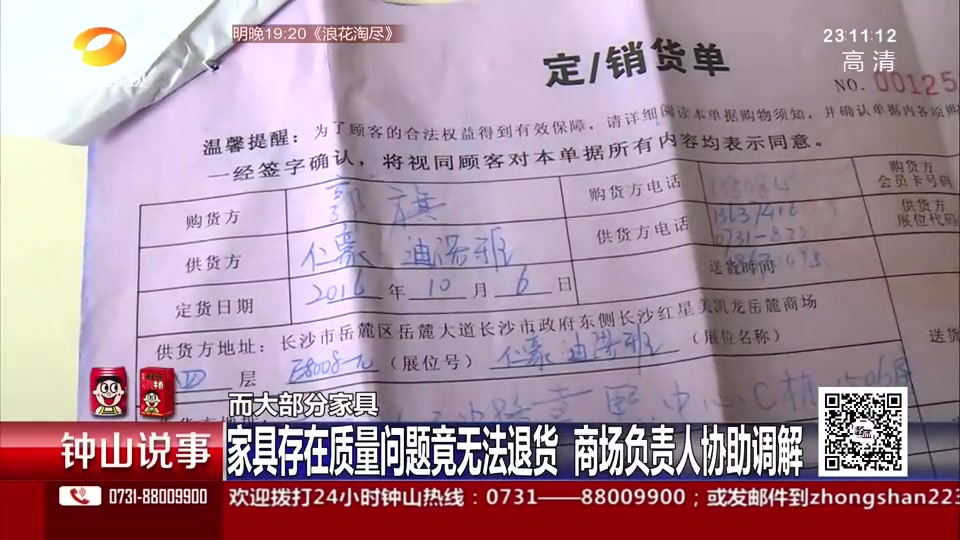 明晚19:20《浪花淘尽》
23:11:12
高清
定/销货单
NO. 00125
温馨提醒：为了顾客的合法权益得到有效保障，请详细阅读本单据购物须知，并确认单据内各项购
一经签字确认，将视同顾客对本单据所有内容均表示同意。
购货方 郭 旗 购货方电话 购货方
会员卡号码
供货方 仁豪 迪洛班 供货方电话 13637416 供货方
0731-822 展位代码
定货日期 2016 年 10 月 6 日 送货时间
供货方地址：长沙市岳麓区岳麓大道长沙市政府东侧长沙红星美凯龙岳麓商场
四 层 E8008-1 （展位号） 仁豪迪洛班 （展位名称） 送货
中心C栋
而大部分家具
钟山说事
家具存在质量问题竟无法退货 商场负责人协助调解
0731-88009900
欢迎拨打24小时钟山热线：0731——88009900；或发邮件到zhongshan223